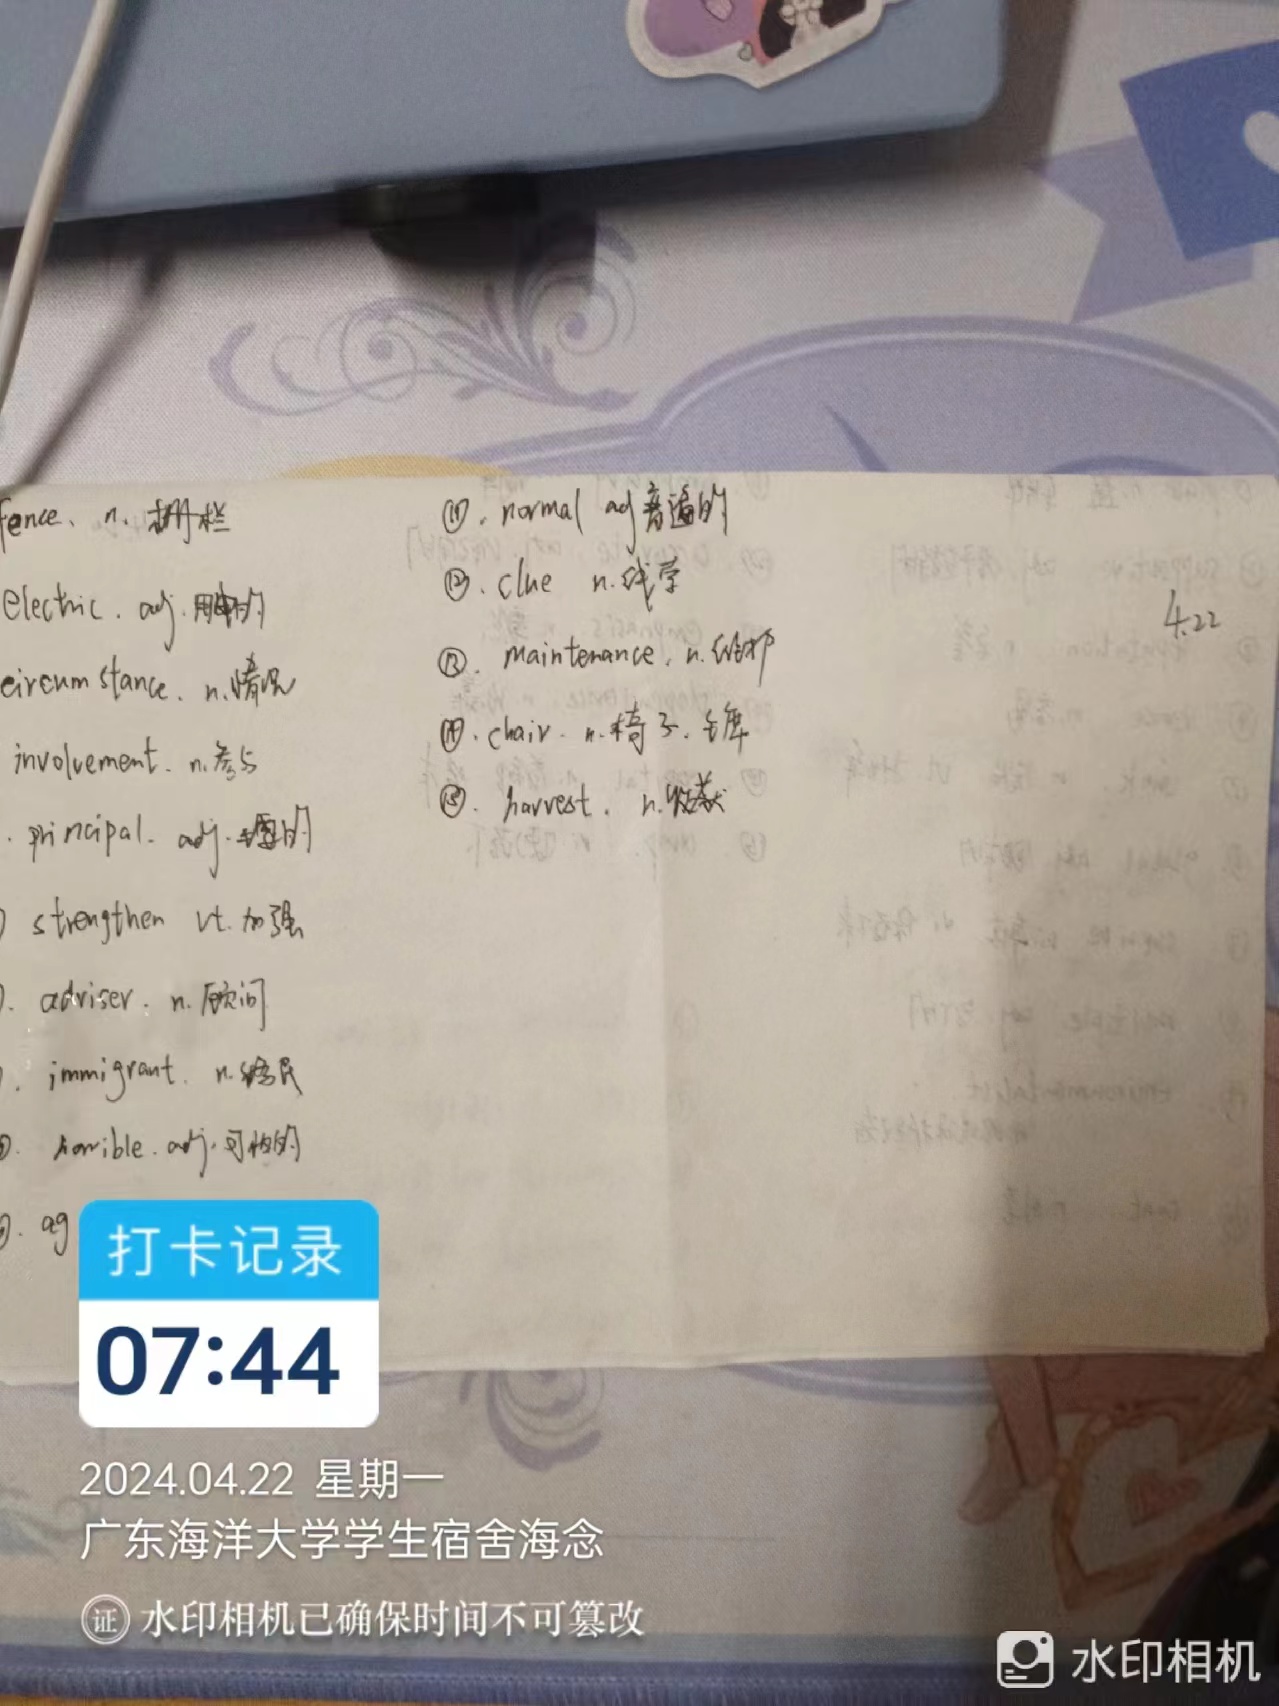 fence、 n. 栅栏
electric. adj. 用电的
circumstance. n. 情况
involvement. n. 参与
principal. adj. 主要的
strengthen vt. 加强
adviser. n. 顾问
immigrant. n. 移民
horrible. adj. 可怕的
ag
⑪. normal adj 普遍的
⑫. clue n. 线索
⑬. maintenance. n. 维护
⑭. chair. n. 椅子.
⑮. harvest. n. 收获
4.22
打卡记录
07:44
2024.04.22 星期一
广东海洋大学学生宿舍海念
证 水印相机已确保时间不可篡改
水印相机